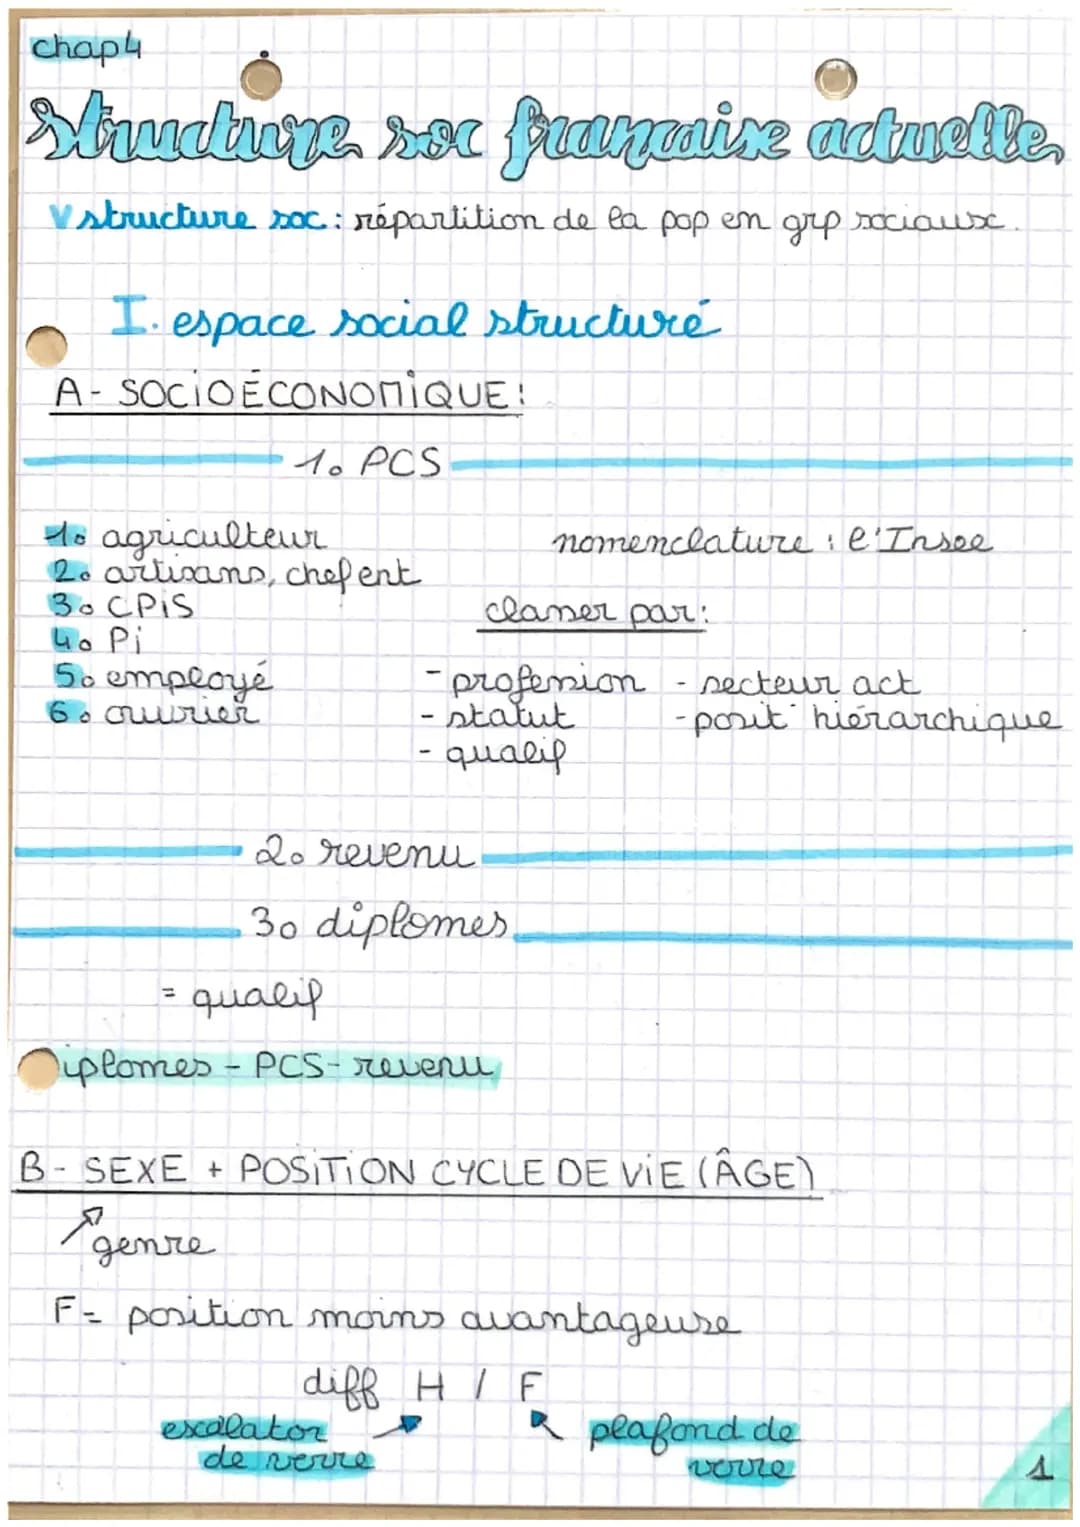 chap4
structure soc francaise actuelle
V structure soc : répartition de la pop en grp sociaux.
I. espace social structuré
A - SOCIOÉCONOMIQUE :
1. PCS
1. agriculteur
nomenclature : l'Insee
2. artisans, chef ent
3. CPiS
classer par :
4. Pi
5. employé
- profession - secteur act
6. ouvrier
- statut - posit° hiérarchique
- qualif
2. revenu
3. diplomes
= qualif
iplomes - PCS - revenu
B - SEXE + POSITION CYCLE DE VIE (ÂGE)
genre
F = position moins avantageuse
diff H / F
escalator de verre
plafond de verre
1